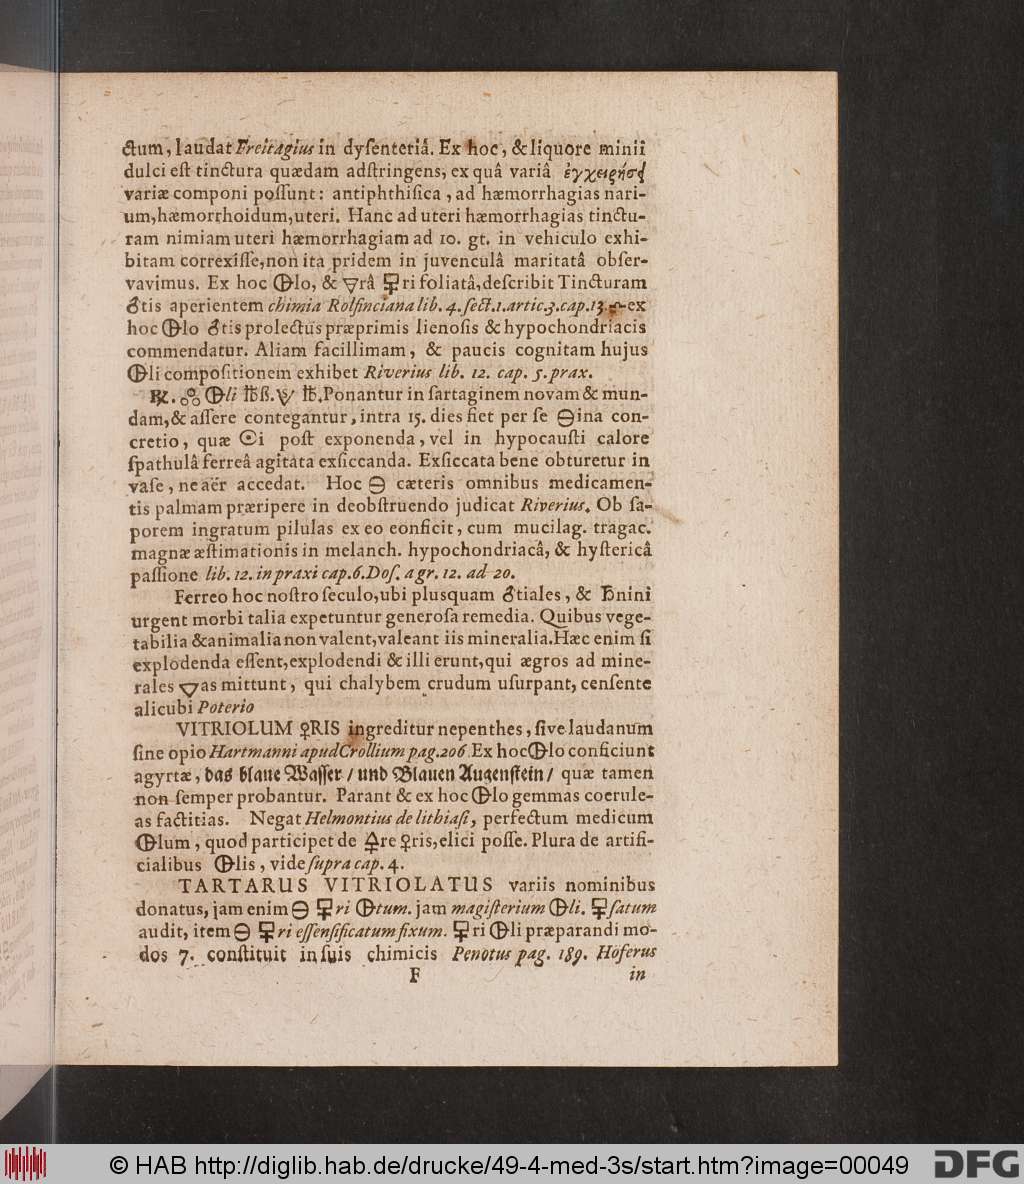 ctum, laudat Freitagius in dyſenteriâ. Ex hoc, & liquore minii
dulci eſt tinctura quædam adſtringens, ex quâ variâ ἐγχειρήσει
variæ componi poſſunt: antiphthiſica, ad hæmorrhagias nari-
um, hæmorrhoidum, uteri. Hanc ad uteri hæmorrhagias tinctu-
ram nimiam uteri hæmorrhagiam ad 10. gt. in vehiculo exhi-
bitam correxiſſe, non ita pridem in juvenculâ maritatâ obſer-
vavimus. Ex hoc 🜖lo, & 🜃râ 🜿ri foliatâ, deſcribit Tincturam
♂tis aperientem chimia Rolfinciana lib. 4. ſect. 1. artic. 3. cap. 13. ex
hoc 🜖lo ♂tis prolectus præprimis lienoſis & hypochondriacis
commendatur. Aliam facillimam, & paucis cognitam hujus
🜖li compoſitionem exhibet Riverius lib. 12. cap. 5. prax.
℞. 🜖li ℔ß. ℔. Ponantur in ſartaginem novam & mun-
dam, & aſſere contegantur, intra 15. dies fiet per ſe 🜔ina con-
cretio, quæ ☉i poſt exponenda, vel in hypocauſti calore
ſpathulâ ferreâ agitata exſiccanda. Exſiccata bene obturetur in
vaſe, ne aër accedat. Hoc 🜔 cæteris omnibus medicamen-
tis palmam præripere in deobſtruendo judicat Riverius. Ob ſa-
porem ingratum pilulas ex eo eonficit, cum mucilag. tragac.
magnæ æſtimationis in melanch. hypochondriacâ, & hyſtericâ
paſſione lib. 12. in praxi cap. 6. Doſ. a gr. 12. ad 20.
Ferreo hoc noſtro ſeculo, ubi plusquam ♂tiales, & ♄nini
urgent morbi talia expetuntur generoſa remedia. Quibus vege-
tabilia & animalia non valent, valeant iis mineralia. Hæc enim ſi
explodenda eſſent, explodendi & illi erunt, qui ægros ad mine-
rales 🜄as mittunt, qui chalybem crudum uſurpant, cenſente
alicubi Poterio
VITRIOLUM ♀RIS ingreditur nepenthes, ſive laudanum
ſine opio Hartmanni apud Crollium pag. 206. Ex hoc 🜖lo conficiunt
agyrtæ, das blaue Waſſer / und Blauen Augenſtein / quæ tamen
non ſemper probantur. Parant & ex hoc 🜖lo gemmas coerule-
as factitias. Negat Helmontius de lithiaſi, perfectum medicum
🜖lum, quod participet de 🜍re ♀ris, elici poſſe. Plura de artifi-
cialibus 🜖lis, vide ſupra cap. 4.
TARTARUS VITRIOLATUS variis nominibus
donatus, jam enim 🜔 🜿ri 🜖tum. jam magiſterium 🜖li. 🜿ſatum
audit, item 🜔 🜿ri eſſenſificatum fixum. 🜿ri 🜖li præparandi mo-
dos 7. conſtituit in ſuis chimicis Penotus pag. 189. Hoferus
F in
© HAB http://diglib.hab.de/drucke/49-4-med-3s/start.htm?image=00049
DFG